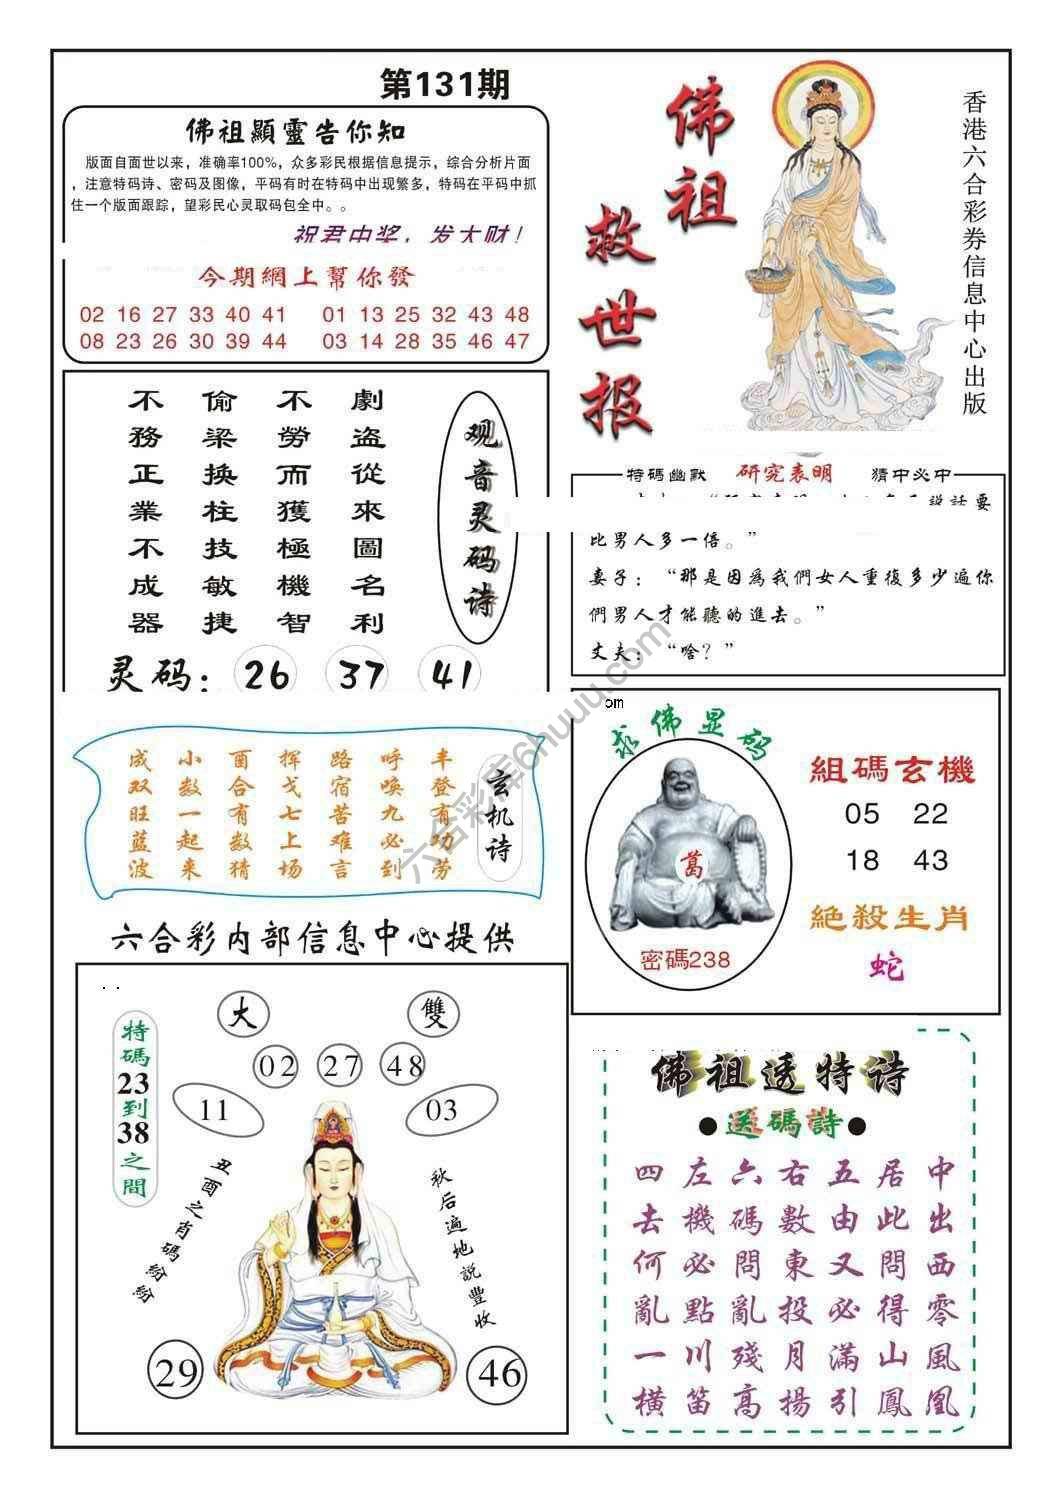 第131期
佛祖顯靈告你知
版面自面世以来，准确率100%，众多彩民根据信息提示，综合分析片面
，注意特码诗、密码及图像，平码有时在特码中出现繁多，特码在平码中抓
住一个版面跟踪，望彩民心灵取码包全中。。
祝君中奖，发大财！
今期網上幫你發
02 16 27 33 40 41 01 13 25 32 43 48
08 23 26 30 39 44 03 14 28 35 46 47
佛祖
救世报
香港六合彩券信息中心出版
观音灵码诗
劇盗從來圖名利
不勞而獲極機智
偷梁换柱技敏捷
不務正業不成器
灵码：26 37 41
特碼幽默 研究表明 猜中必中
說話要
比男人多一倍。”
妻子：“那是因爲我們女人重復多少遍你
們男人才能聽的進去。”
丈夫：“啥？”
玄机诗
丰登有功劳
呼唤九必到
路宿苦难言
挥戈七上场
酉合有数猜
小数一起来
成双旺蓝波
om
求佛显码
葛
密碼238
組碼玄機
05 22
18 43
絕殺生肖
蛇
六合彩内部信息中心提供
特碼23到38之間
大 雙
02 27 48
11 03
丑酉之肖碼紛紛
秋后遍地說豐收
29 46
佛祖透特诗
●送碼詩●
中出西零風凰
居此問得山鳳
五由又必滿引
右數東投月揚
六碼問亂殘高
左機必點川笛
四去何亂一橫
六合彩库6huuu.com